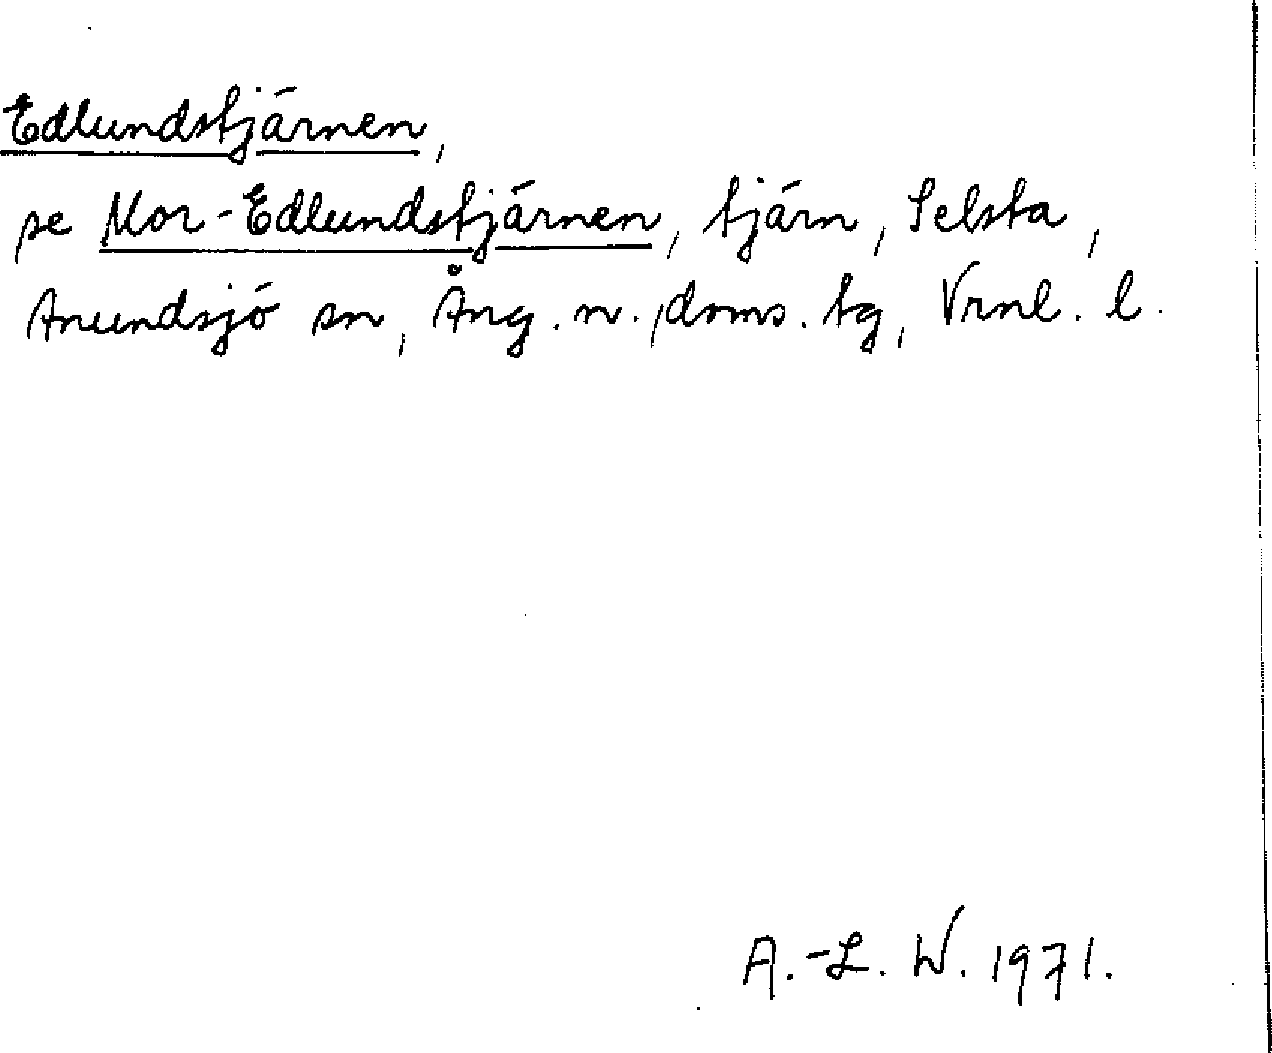 Edlundstjärnen,
se Mor-Edlundstjärnen, tjärn, Selsta,
Anundsjö sn, Ång. n. doms. tg, Vrnl. l.
A.-L. W. 1971.